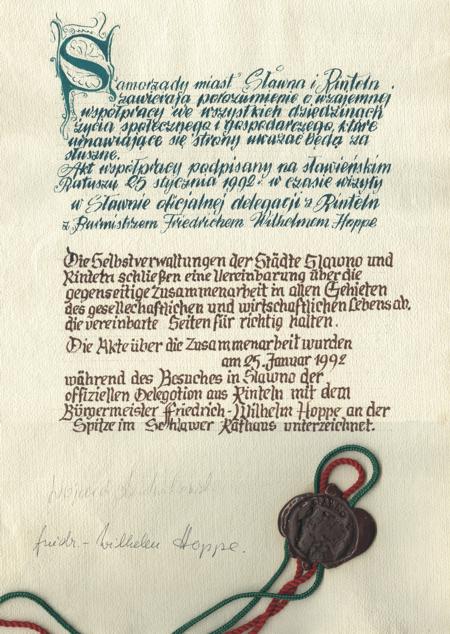 Samorządy miast Sławna i Rinteln
zawierają porozumienie o wzajemnej
współpracy we wszystkich dziedzinach
życia społecznego i gospodarczego, które
umawiające się strony uważać będą za
słuszne.
Akt współpracy podpisany na sławieńskim
Ratuszu 25 stycznia 1992 r. w czasie wizyty
w Sławnie oficjalnej delegacji z Rinteln
z Burmistrzem Friedrichem Wilhelmom Hoppe
Die Selbstverwaltungen der Städte Slawno und
Rinteln schließen eine Vereinbarung über die
gegenseitige Zusammenarbeit in allen Gebieten
des gesellechaftlichen und wirtschaftlichen Lebens ab,
die vereinbarte Seiten für richtig halten.
Die Akte über die Zusammenarbeit wurden
am 25. Januar 1992
während des Besuches in Slawno der
offiziellen Delegation aus Rinteln mit dem
Bürgermeister Friedrich-Wilhelm Hoppe an der
Spitze im Schlawer Rathaus unterzeichnet.
Friedr.-Wilhelm Hoppe.